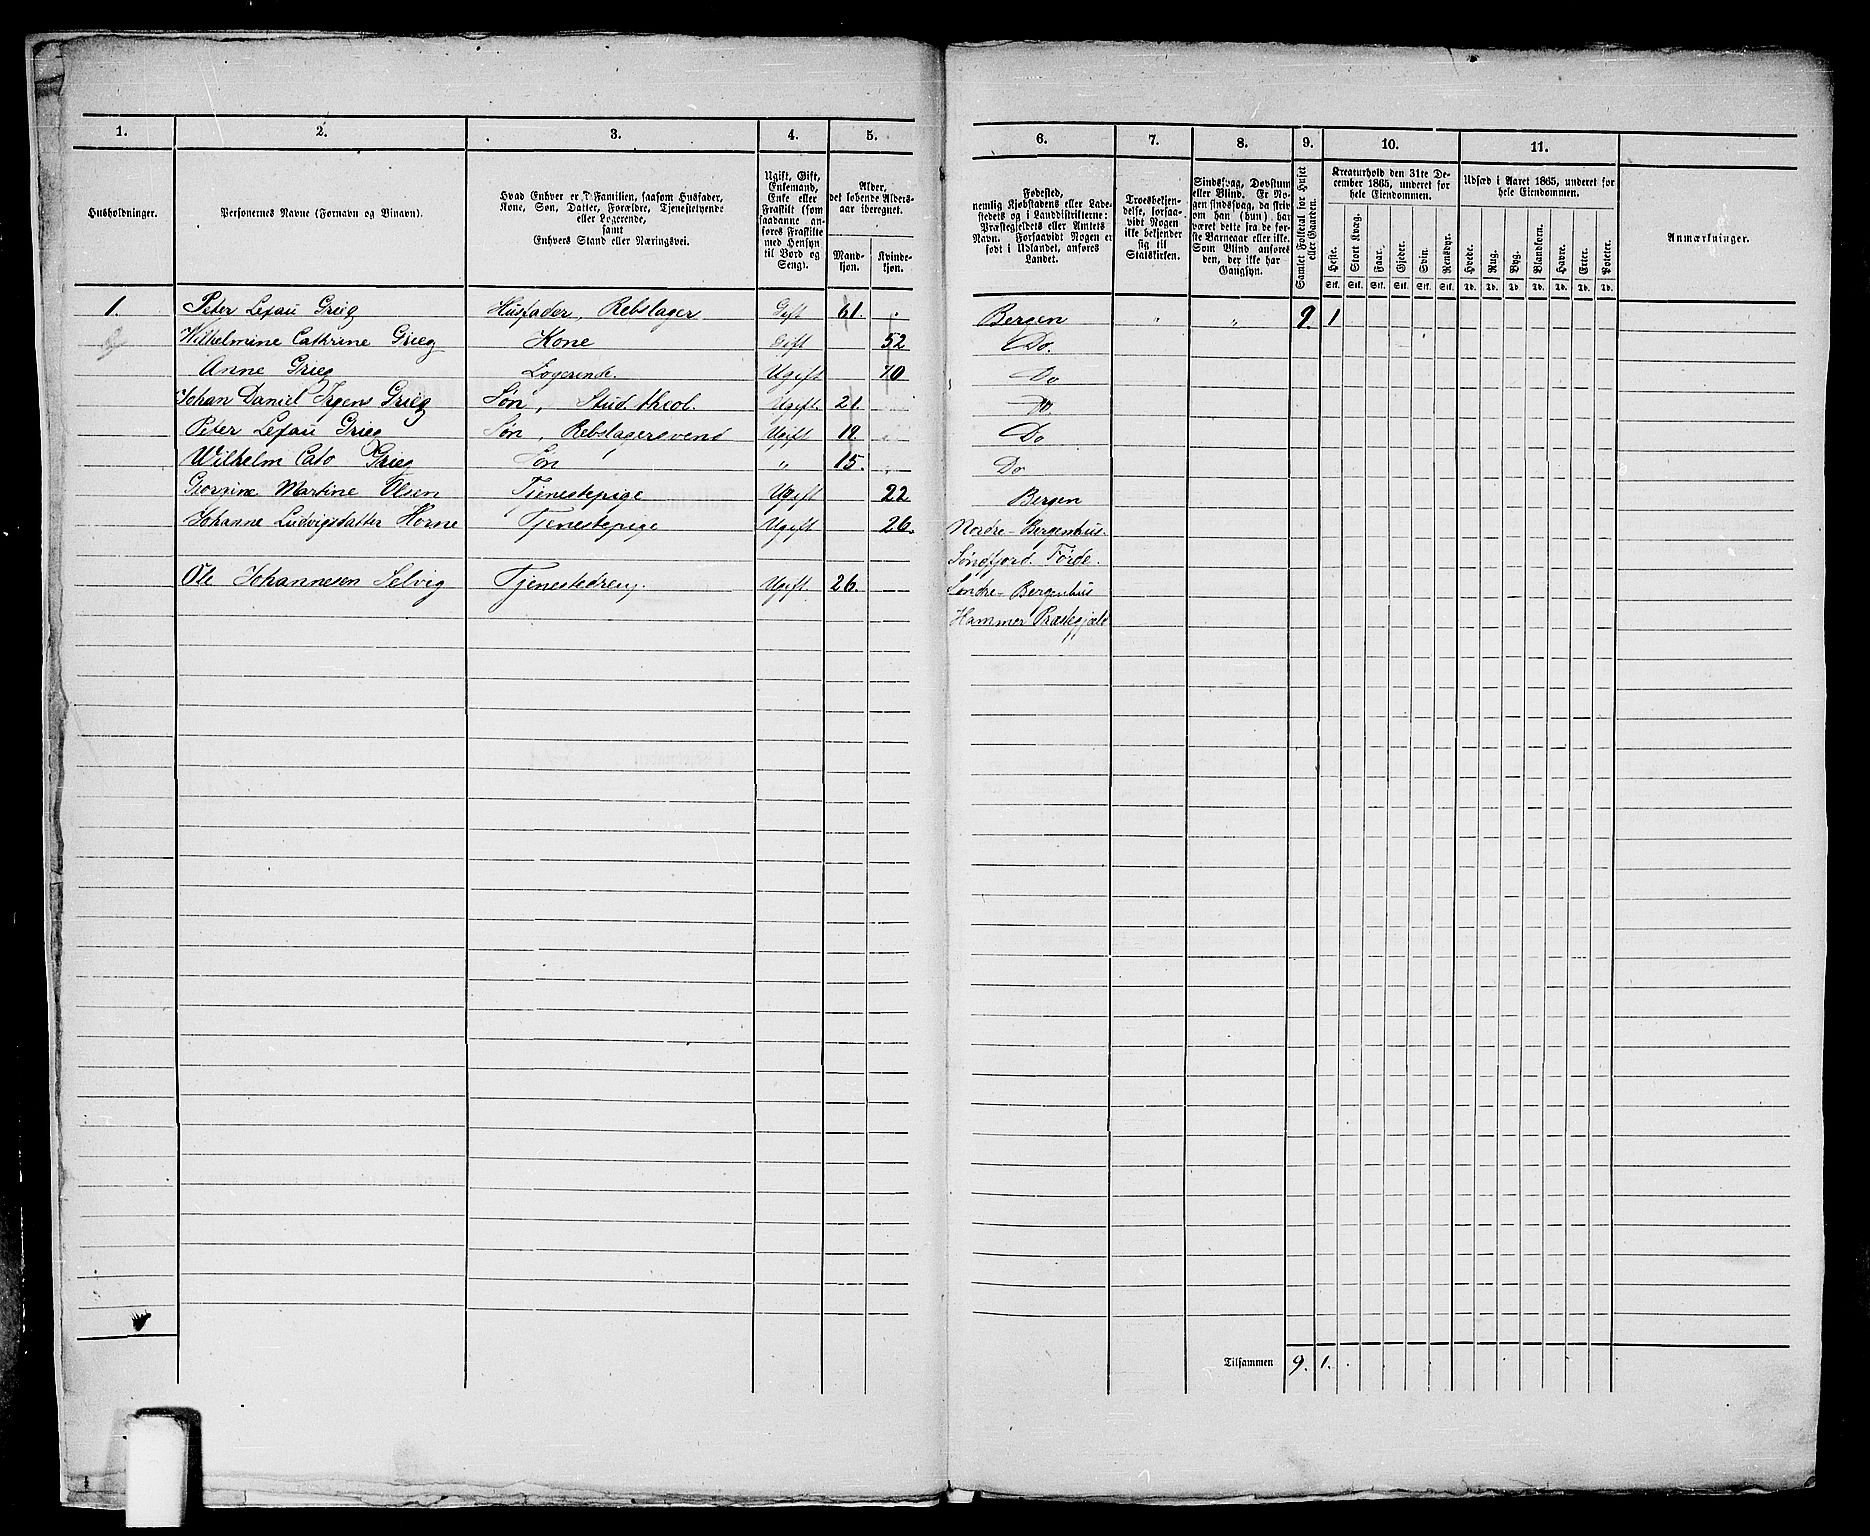 1.
2.
3.
4.
5.
Husholdninger.
Personernes Navne (Fornavn og Tilnavn).
Hvad Enhver er i Familien, saasom Husfader,
Kone, Søn, Datter, Forældre, Tjenestetyende
eller Logerende,
samt
Enhvers Stand eller Næringsvei.
Ugift, Gift,
Enkemand,
Enke eller
Fraskilt (som
saadanne anføres
Fraskilte
med Hensyn
til Bord og
Seng).
Alder,
det løbende Alders-
aar iberegnet.
Mand-
kjøn.
Kvinde-
kjøn.
1. Peter Lexau Grieg Husfader, Rebslager Gift 61. "
Wilhelmine Cathrine Grieg Kone Gift 52
Anne Grieg Logerende. Ugift 70
Johan Daniel Irgens Grieg Søn, Stud. theol. Ugift. 21.
Peter Lexau Grieg Søn, Rebslagersvend Ugift 19.
Wilhelm Cato Grieg Søn " 15.
Martine Olsen Tjenestepige Ugift 22
Johanne Ludvigsdatter Horne Tjenestepige Ugift 26.
Ole Johannesen Selvig Tjenestedreng. Ugift. 26.
6.
7.
8.
9.
10.
11.
Fødested,
nemlig Kjøbstadens eller Lade-
stedets og i Landdistrikterne:
Præstegjeldets eller Amtets
Navn. Forsaavidt Nogen er
født i Udlandet, anføres
Landet.
Troesbekjen-
delse, forsaa-
vidt Nogen
ikke bekjender
sig til
Statskirken.
Sindssvag, Døvstum
eller Blind. Er No-
gen sindssvag, da skriv
om han (hun) har
været dette fra de før-
ste Barneaar eller ikke.
Som Blind anføres
den, der ikke har
Gangsyn.
Samlet Folketal for Huset
eller Gaarden.
Kreaturhold den 31te De-
cember 1865, underet for
hele Eiendommen.
Heste.
Stort Kvæg.
Faar.
Gjeder.
Svin.
Rensdyr.
Stk. Stk. Stk. Stk. Stk. Stk.
Udsæd i Aaret 1865, underet for
hele Eiendommen.
Hvede.
Rug.
Byg.
Blandkorn.
Havre.
Erter.
Poteter.
Td. Td. Td. Td. Td. Td. Td.
Anmærkninger.
Bergen " " 9. 1
Do.
Do
Do
Do
Do
Bergen
Nordre-Bergenhus.
Søndfjord. Førde.
Søndre-Bergenhus
Hammer Præstegjæld
Tilsammen 9. 1.